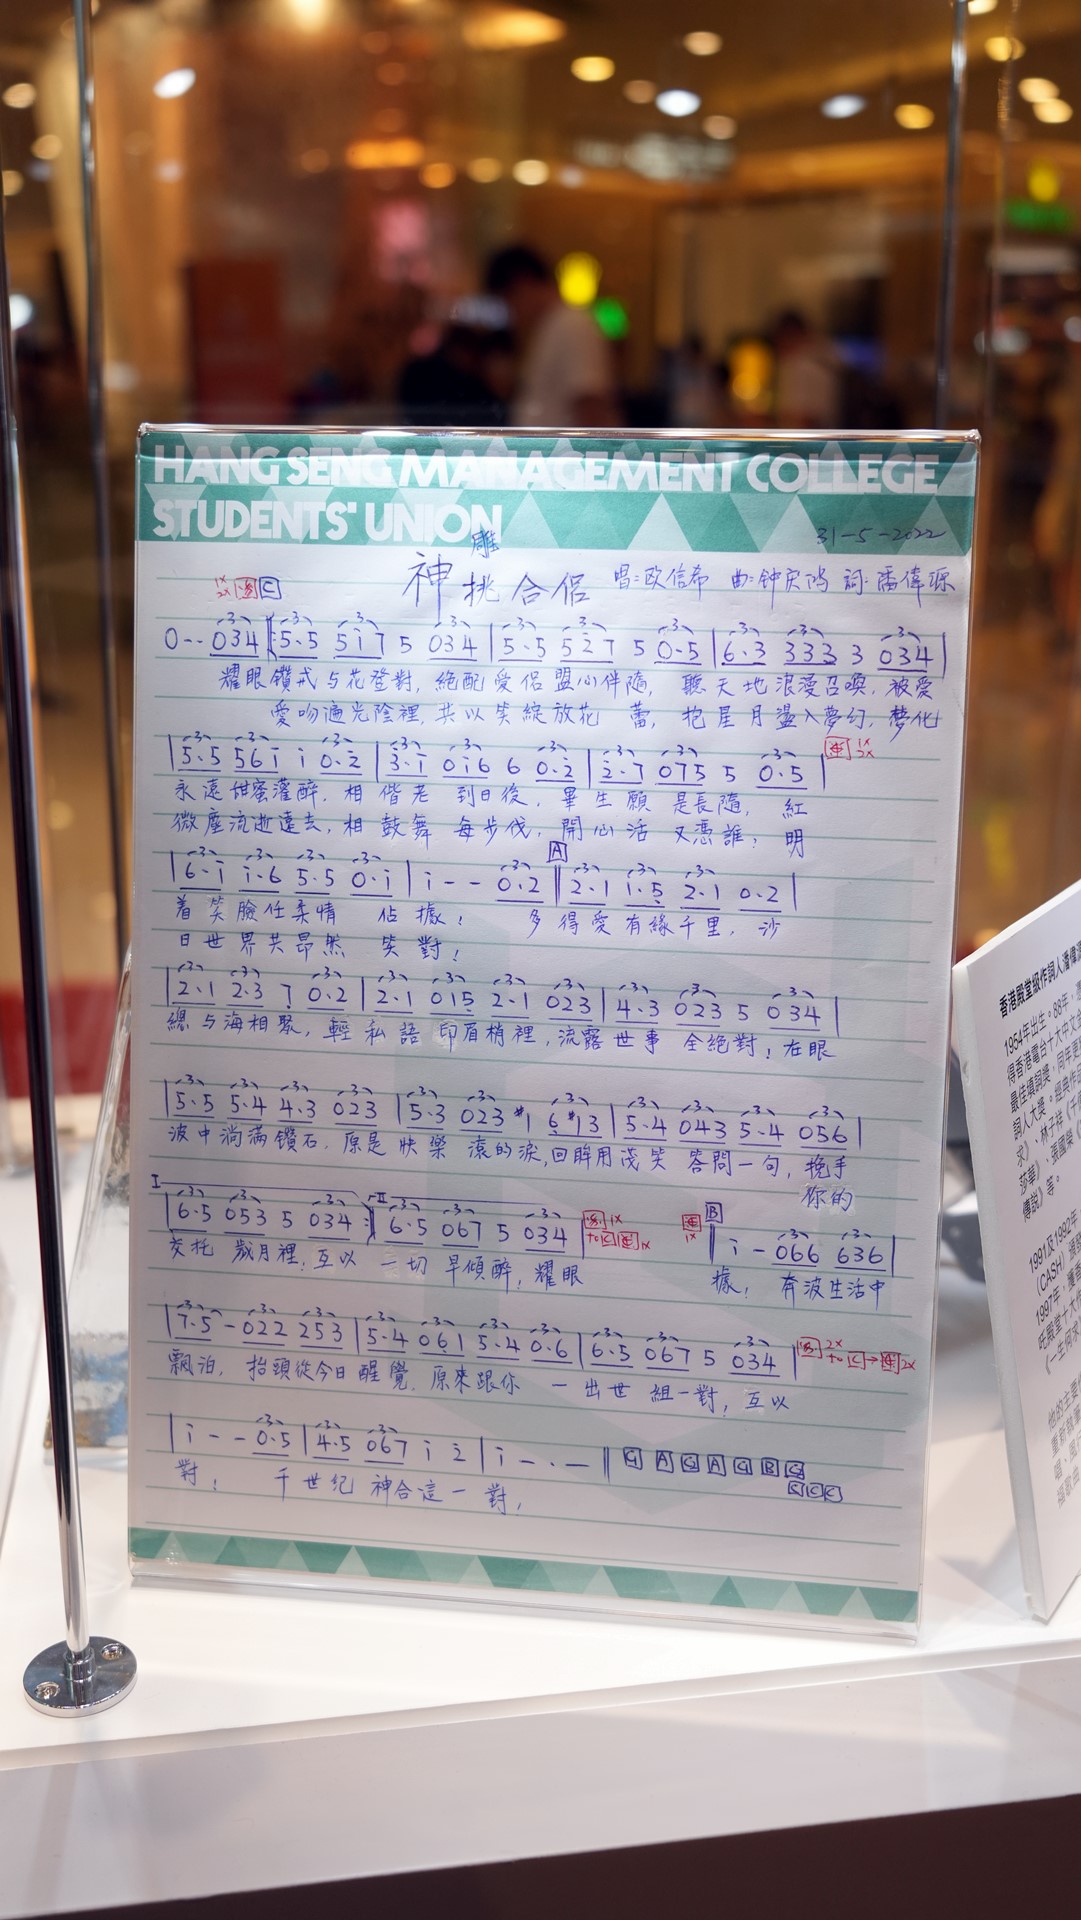 HANG SENG MANAGEMENT COLLEGE
STUDENTS' UNION
31-5-2022
雕
神挑合侶 唱:欧信希 曲:钟定鸿 詞:潘偉源
1x
2x C
0-- 034 5.5 5i7 5 034 | 5.5 527 5 0.5 | 6.3 333 3 034 |
耀眼鑽戒与花登對, 絕配愛侶盟心伴隨, 聽天地浪漫召喚, 被愛
愛吻遍光陰裡, 共以笑綻放花蕾, 抱星月盪入夢幻, 夢化
| 5.5 56i i 0.2 | 3.i 0i6 6 0.2 | 2.7 075 5 0.5 | 1x
2x
永遠甜蜜灌醉, 相偕老到日後, 畢生願是長隨, 紅
微塵流逝遠去, 相鼓舞每步伐, 開心活又憑誰, 明
A
| 6.i i.6 5.5 0.i | i - - 0.2 || 2.1 1.5 2.1 0.2 |
着笑臉任柔情佔據! 多得愛有緣千里, 沙
日世界共昂然笑對!
| 2.1 2.3 7 0.2 | 2.1 015 2.1 023 | 4.3 023 5 034 |
總与海相聚, 輕私語印眉梢裡, 流露世事全絕對! 在眼
| 5.5 5.4 4.3 023 | 5.3 023 #1 6#13 | 5.4 043 5.4 056 |
波中淌滿鑽石, 原是快樂滾的淚, 回眸用淺笑答問一句, 挽手
你的
I II
| 6.5 053 5 034 :|| 6.5 067 5 034 1x
to C 1x
1x B
|| i - 066 636 |
交托歲月裡, 互以一切早傾醉, 耀眼 據! 奔波生活中
| 7.5 - 022 253 | 5.4 061 5.4 0.6 | 6.5 067 5 034 | 2x
to C → 2x
飄泊, 抬頭從今日醒覺, 原來跟你一出世組一對, 互以
| i - - 0.5 | 4.5 067 i 2 | i - . - || C A C A C B C
C C C
對! 千世纪神合這一對,
香港殿堂級作詞人潘偉源
1954年出生。88年,
得香港電台十大中文金
最佳填詞獎,同年更
詞人大獎。經典作品
求》、林子祥《千
莎華》、張國榮《
傳說》等。
1991及1992年
(CASH)頒發
1997年,獲香
他的主要